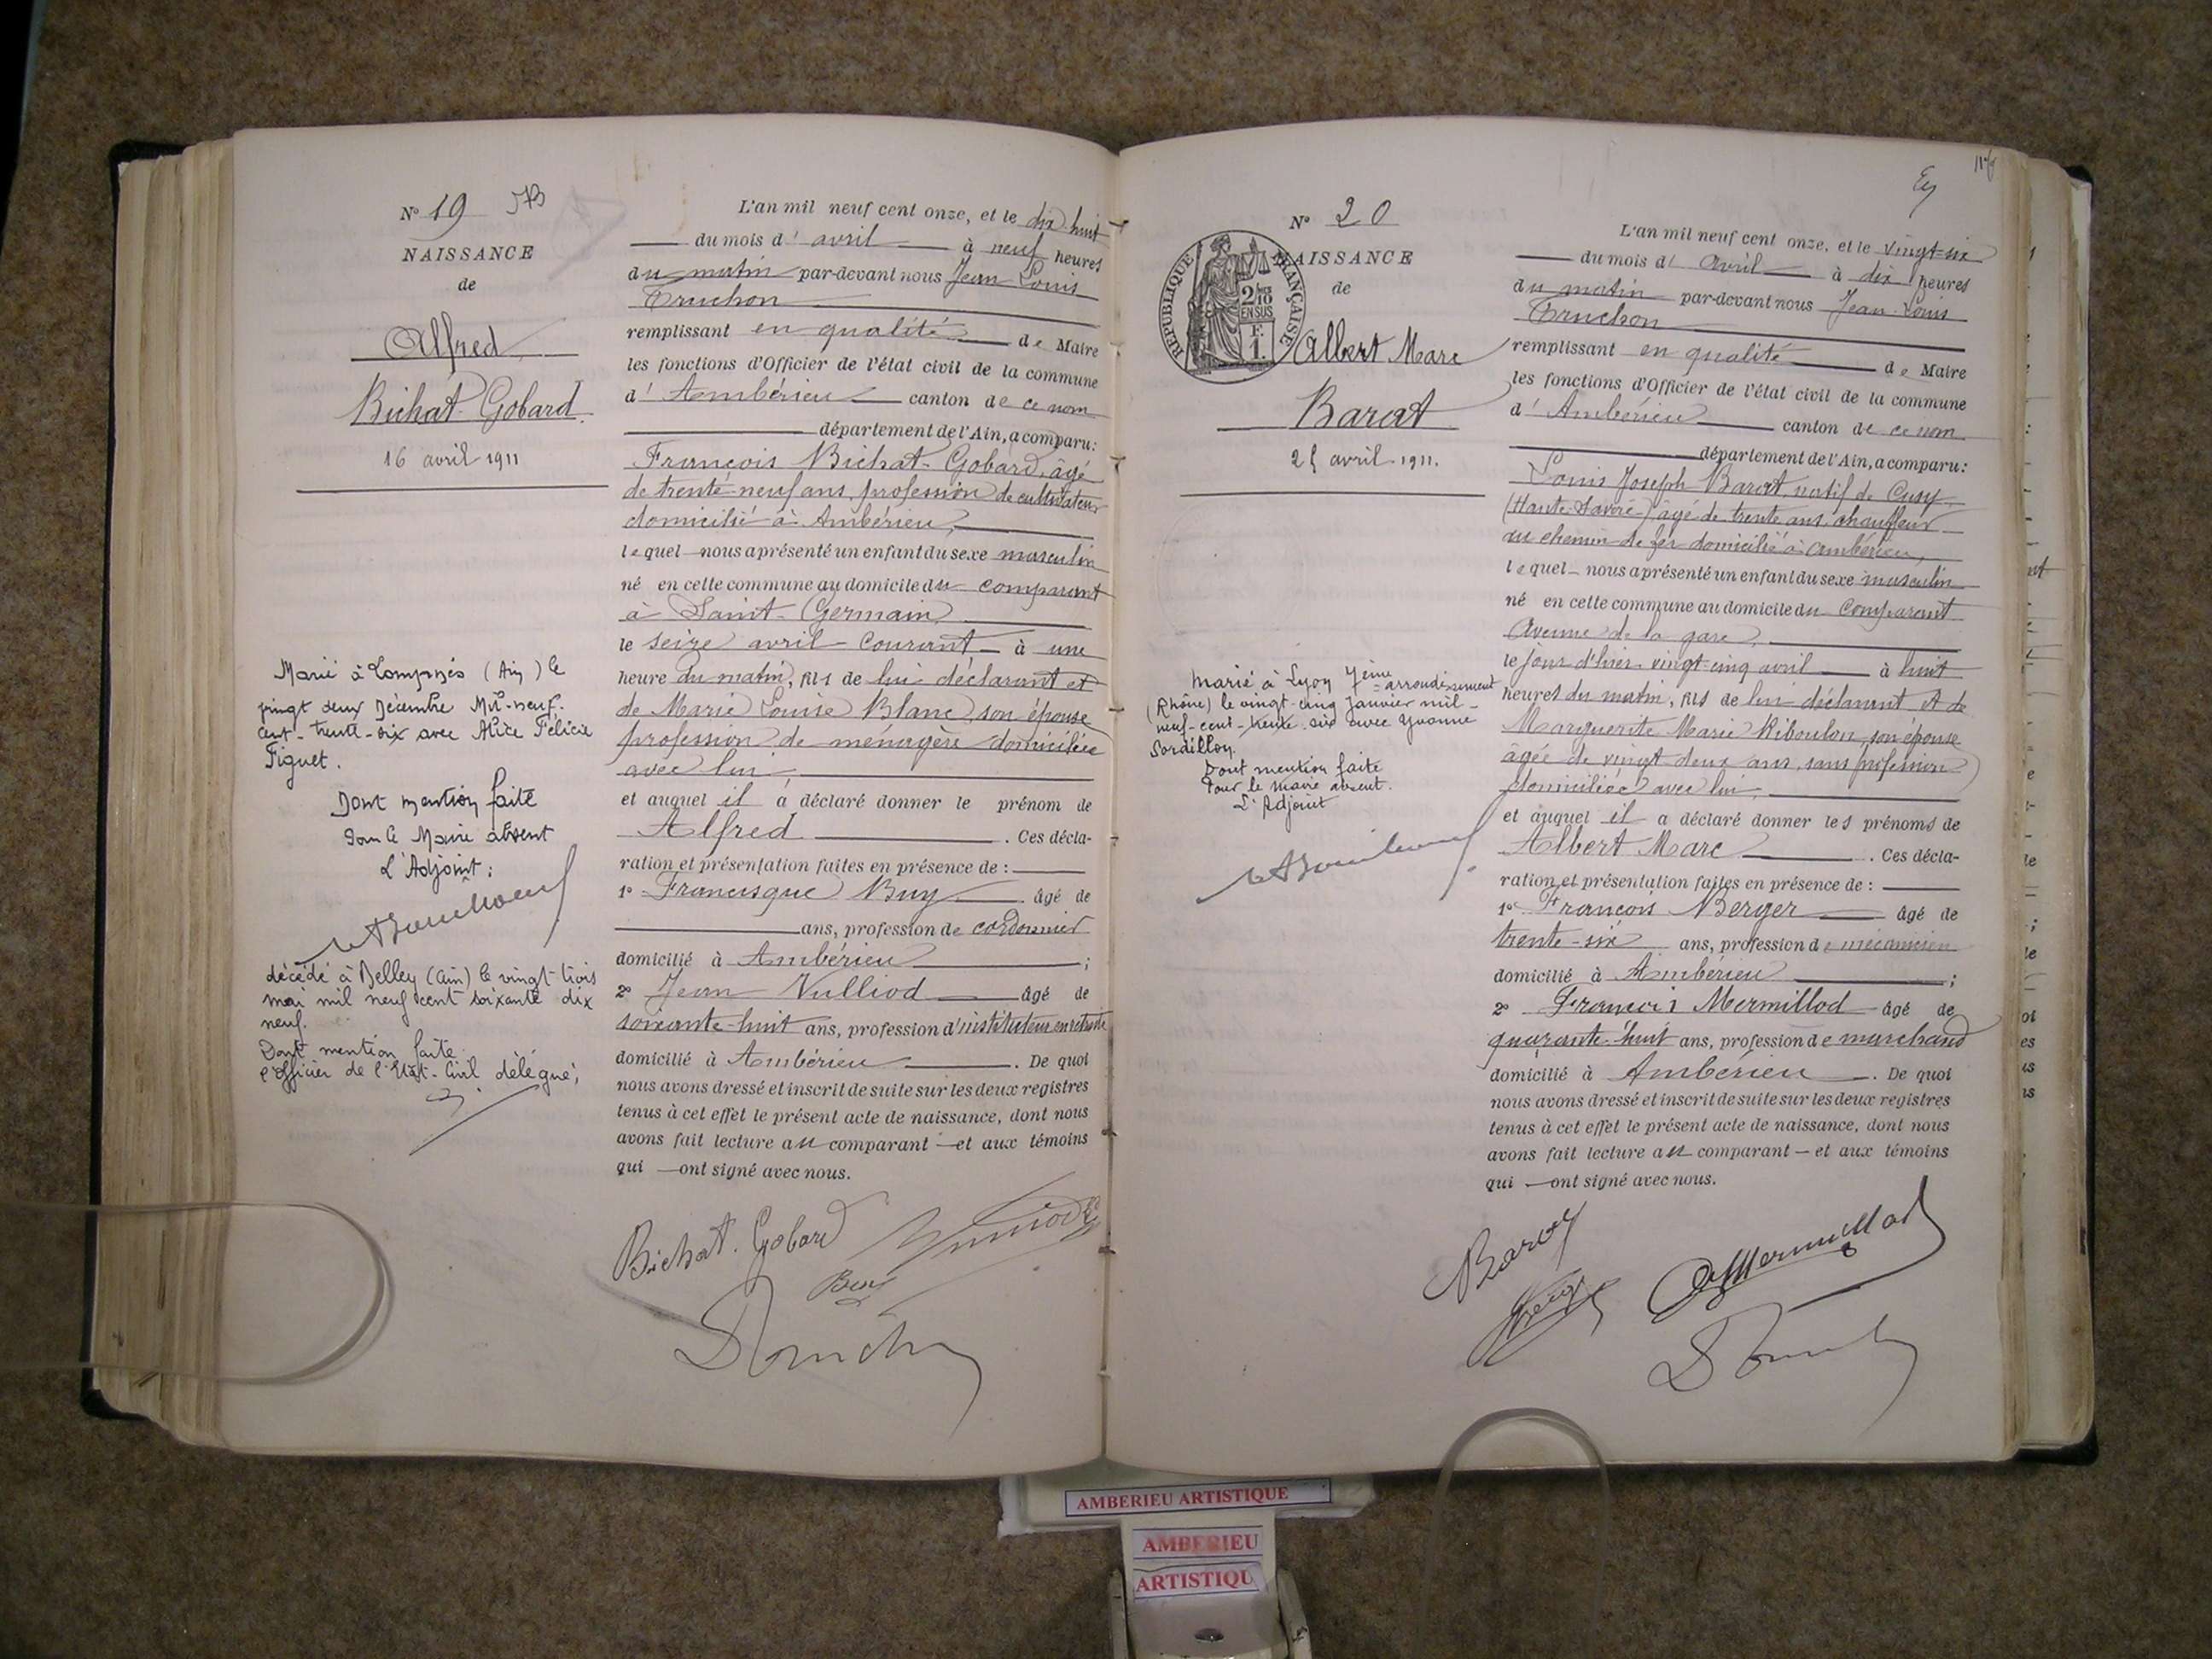 N° 19
NAISSANCE
de
Alfred
Bichat-Gobard
16 avril 1911
Marié à Lompnes (Ain) le
vingt deux Décembre Mil-neuf-
cent-trente-six avec Alice Félicie
Figuet.
Dont mention faite
Pour le Maire absent
L'Adjoint :
décédé à Belley (Ain) le vingt-trois
mai mil neuf cent soixante dix
neuf.
Dont mention faite.
l'Officier de l'Etat-Civil délégué,
L'an mil neuf cent onze, et le dix huit
du mois d'avril à neuf heures
du matin par-devant nous Jean Louis
Truchon
remplissant en qualité de Maire
les fonctions d'Officier de l'état civil de la commune
d'Ambérieu canton de ce nom
département de l'Ain, a comparu :
François Bichat-Gobard, âgé
de trente-neuf ans, profession de cultivateur
domicilié à Ambérieu,
lequel nous a présenté un enfant du sexe masculin
né en cette commune au domicile du comparant
à Saint-Germain
le seize avril courant à une
heure du matin, fils de lui déclarant et
de Marie Louise Blanc, son épouse
profession de ménagère domiciliée
avec lui,
et auquel il a déclaré donner le prénom de
Alfred . Ces décla-
ration et présentation faites en présence de :
1° Francisque Buy âgé de
ans, profession de cordonnier
domicilié à Ambérieu ;
2° Jean Vulliod âgé de
soixante-huit ans, profession d'instituteur en retraite
domicilié à Ambérieu . De quoi
nous avons dressé et inscrit de suite sur les deux registres
tenus à cet effet le présent acte de naissance, dont nous
avons fait lecture au comparant et aux témoins
qui ont signé avec nous.
Bichat-Gobard
Buy
Truchon
N° 20
NAISSANCE
de
RÉPUBLIQUE FRANÇAISE
2/10
EN SUS
F.
1.
Albert Marc
Barat
25 avril 1911.
Marié à Lyon 7ème arrondissement
(Rhône) le vingt-cinq janvier mil-
neuf-cent-trente-six avec Yvonne
Sordillon.
Dont mention faite
Pour le Maire absent.
L'Adjoint
L'an mil neuf cent onze, et le vingt-six
du mois d'avril à dix heures
du matin par-devant nous Jean Louis
Truchon
remplissant en qualité de Maire
les fonctions d'Officier de l'état civil de la commune
d'Ambérieu canton de ce nom
département de l'Ain, a comparu :
Louis Joseph Barat, natif de Cusy
(Haute-Savoie) âgé de trente ans, chauffeur
au chemin de fer domicilié à Ambérieu,
lequel nous a présenté un enfant du sexe masculin
né en cette commune au domicile du comparant
Avenue de la gare,
le jour d'hier vingt-cinq avril à huit
heures du matin, fils de lui déclarant et de
Marguerite Marie Riboulon, son épouse
âgée de vingt deux ans, sans profession
domiciliée avec lui,
et auquel il a déclaré donner les prénoms de
Albert Marc . Ces décla-
ration et présentation faites en présence de :
1° François Berger âgé de
trente-six ans, profession de mécanicien
domicilié à Ambérieu ;
2° François Mermillod âgé de
quarante-huit ans, profession de marchand
domicilié à Ambérieu . De quoi
nous avons dressé et inscrit de suite sur les deux registres
tenus à cet effet le présent acte de naissance, dont nous
avons fait lecture au comparant et aux témoins
qui ont signé avec nous.
Barat
Mermillod
AMBERIEU ARTISTIQUE
AMBERIEU
ARTISTIQU